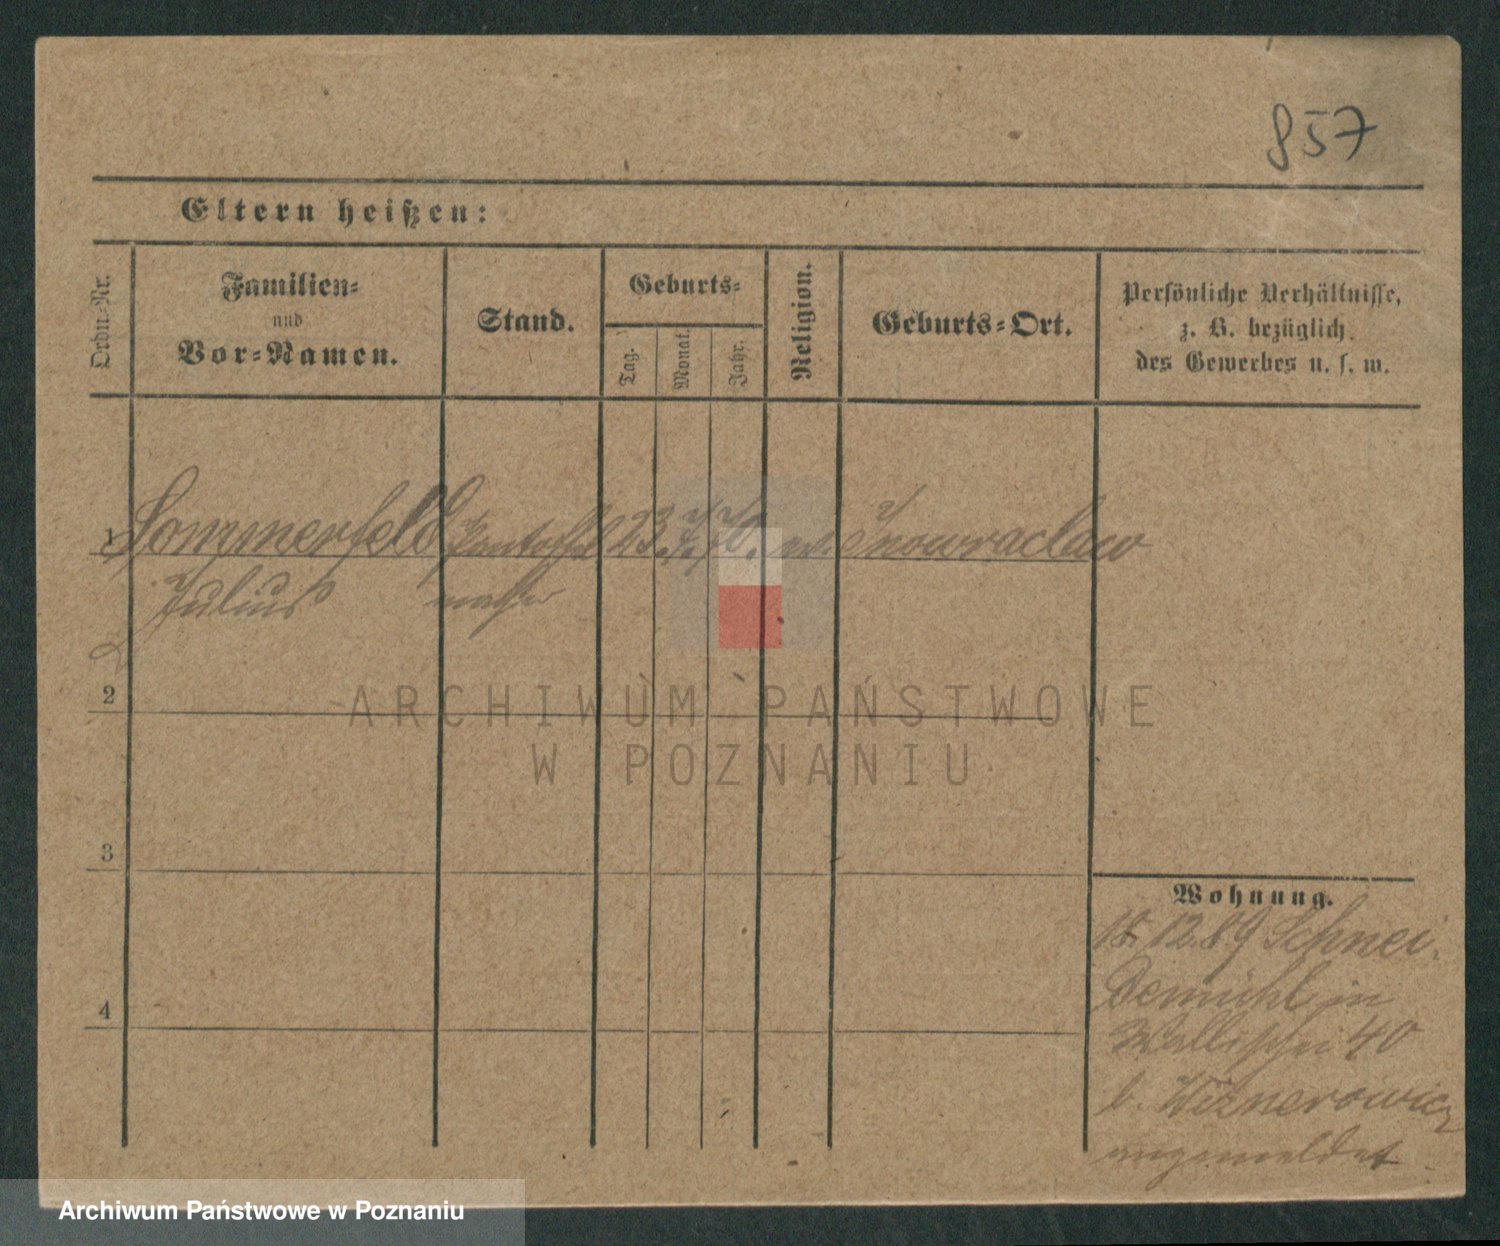 857
Eltern heißen:
Ordn-Nr.
Familien-
und
Vor-Namen.
Stand.
Geburts-
Tag.
Monat.
Jahr.
Religion.
Geburts-Ort.
Persönliche Verhältnisse,
z. B. bezüglich
des Gewerbes u. s. w.
1 Sommerfeld Pantoffel 23. 7. 70. ev. Inowraclaw
Julius macher
2
ARCHIWUM PAŃSTWOWE
W POZNANIU
3
4
Wohnung.
18.12.89 Schnei-
demühl in
Wallischei 40
b. Wiznerowicz
angemeldet.
Archiwum Państwowe w Poznaniu